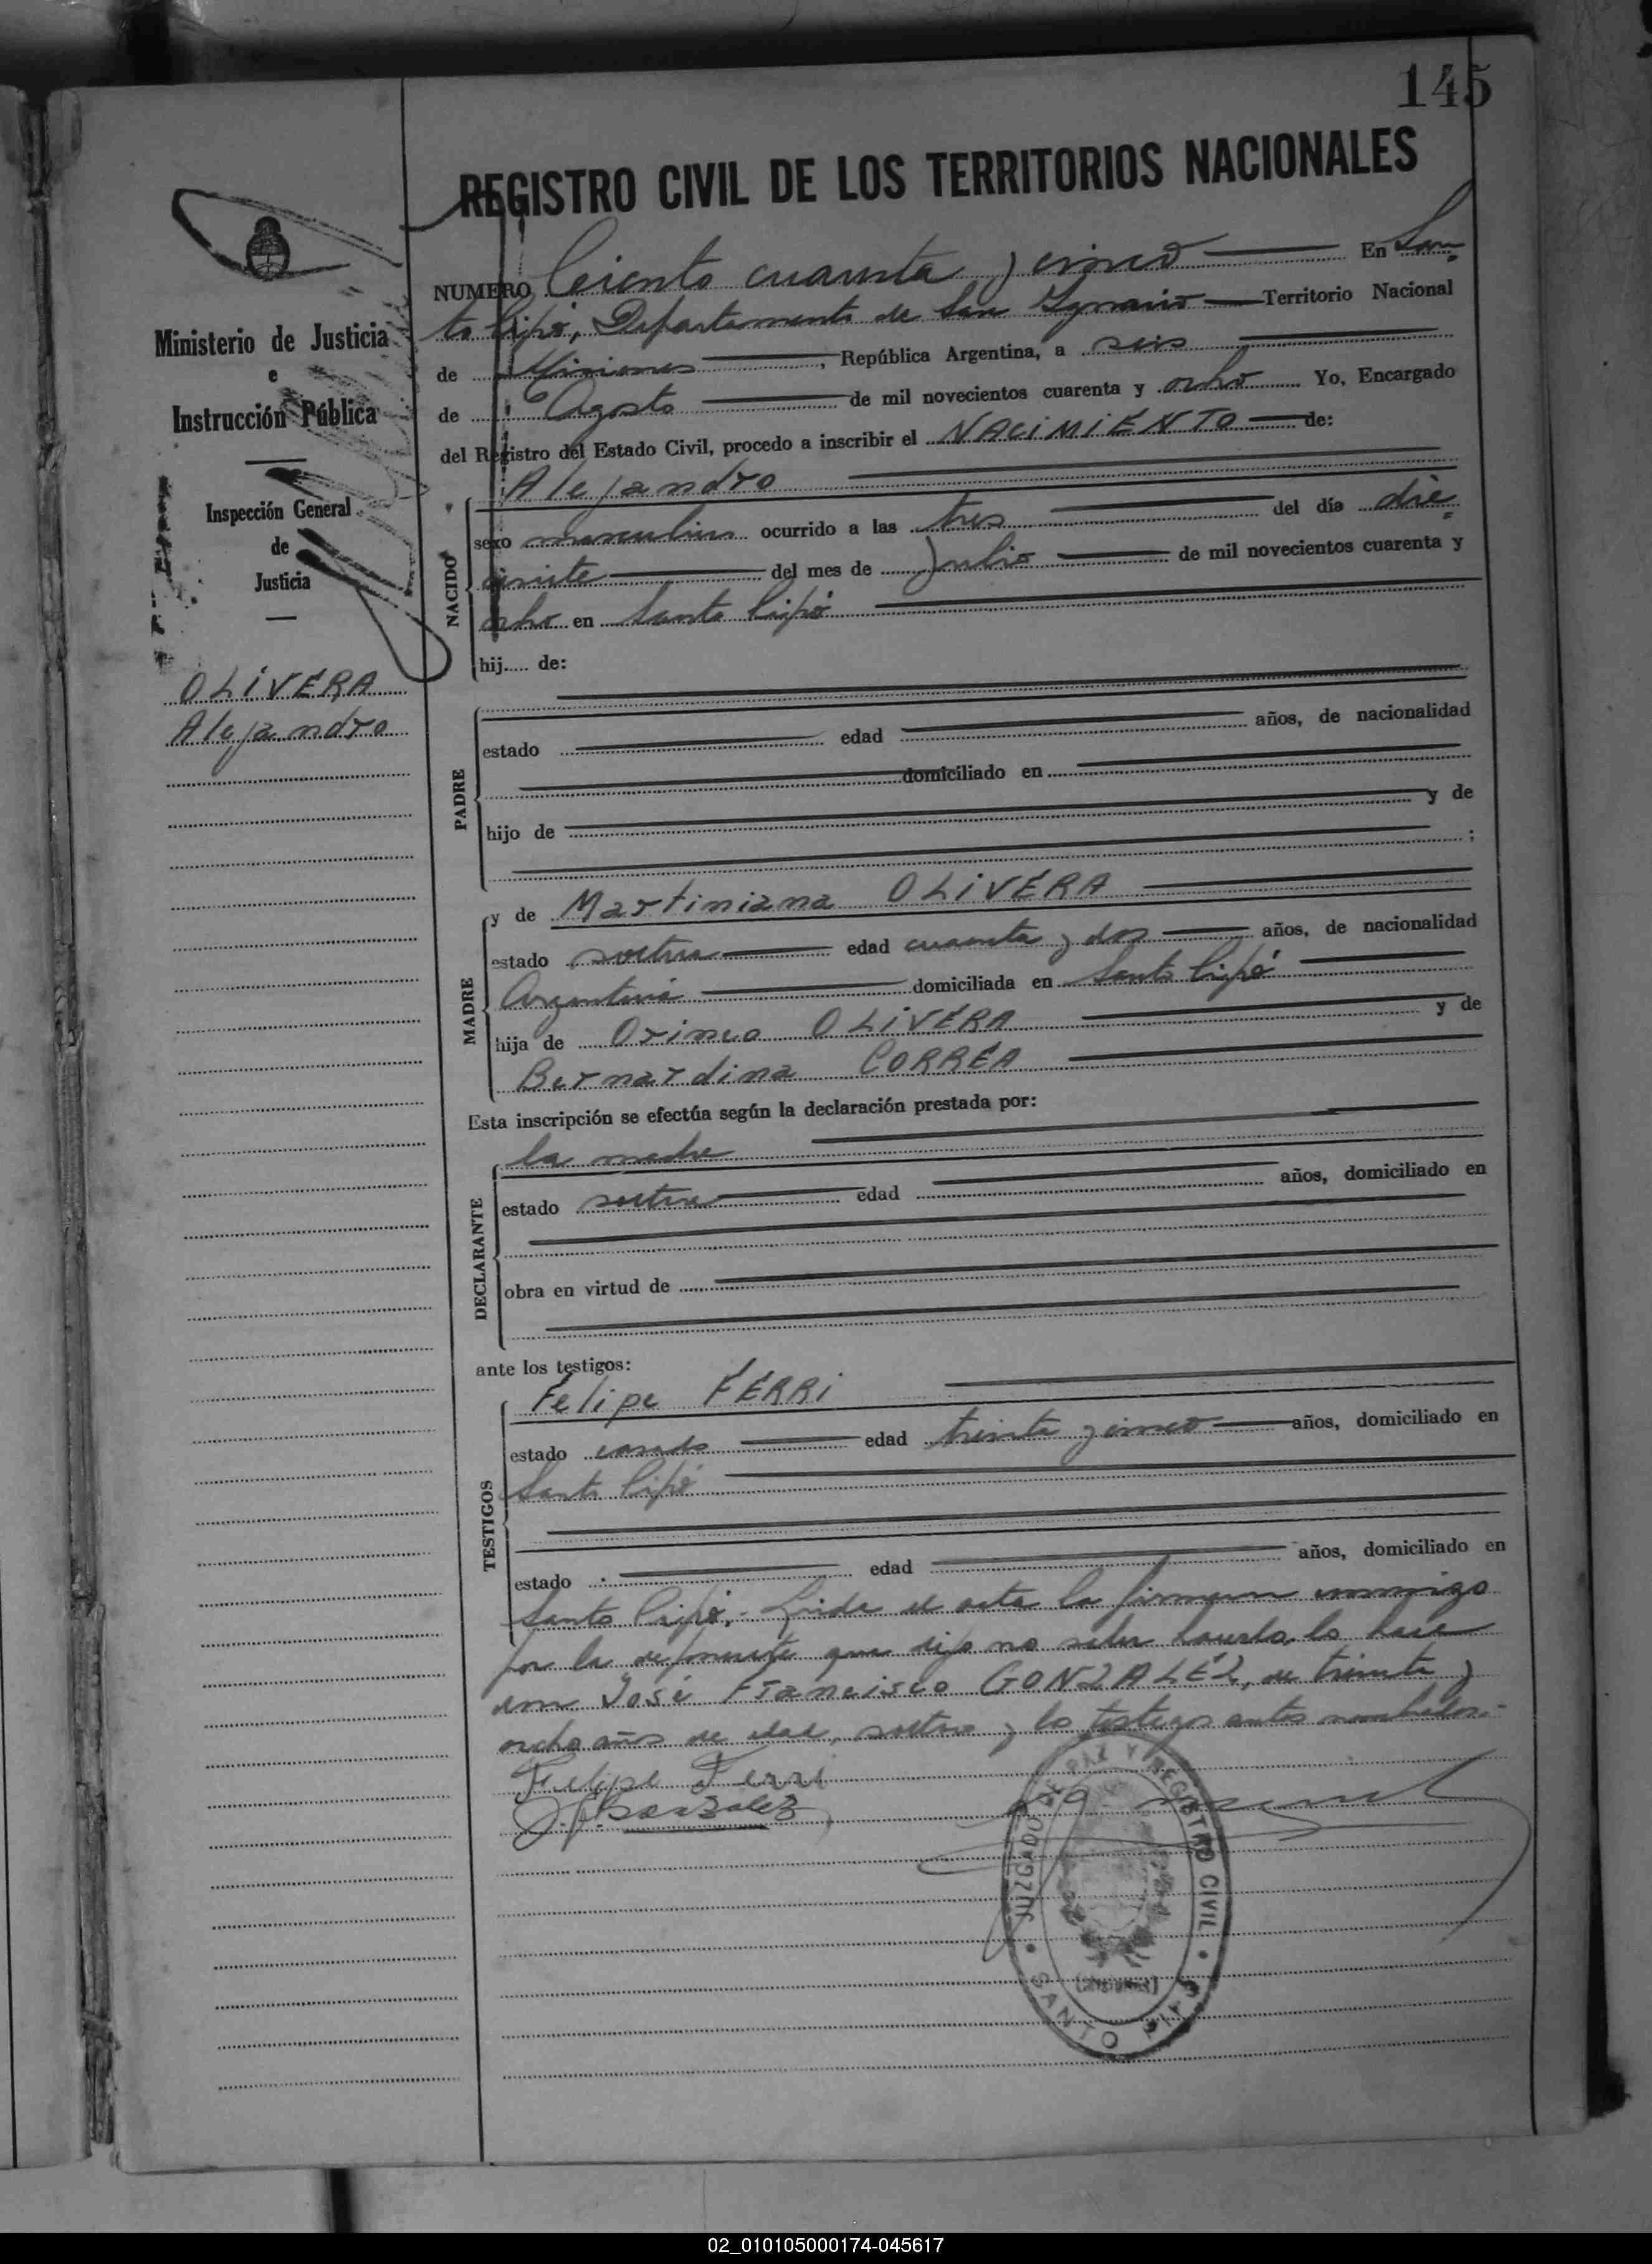 145
REGISTRO CIVIL DE LOS TERRITORIOS NACIONALES
NUMERO Ciento cuarenta y cinco En San
to Pipó, Departamento de San Ignacio Territorio Nacional
de Misiones, República Argentina, a seis
de Agosto de mil novecientos cuarenta y ocho Yo, Encargado
del Registro del Estado Civil, procedo a inscribir el NACIMIENTO de:
Ministerio de Justicia
e
Instrucción Pública
Inspección General
de
Justicia
OLIVERA
Alejandro
NACIDO
Alejandro
sexo masculino ocurrido a las tres del día die
cisiete del mes de Julio de mil novecientos cuarenta y
ocho en Santo Pipó
hij..... de:
PADRE
estado edad años, de nacionalidad
domiciliado en
hijo de y de
;
MADRE
y de Martiniana OLIVERA
estado soltera edad cuarenta y dos años, de nacionalidad
Argentina domiciliada en Santo Pipó
hija de Orinco OLIVERA y de
Bernardina CORREA
Esta inscripción se efectúa según la declaración prestada por:
DECLARANTE
la madre
estado soltera edad años, domiciliado en
obra en virtud de
ante los testigos:
TESTIGOS
Felipe FERRI
estado casado edad treinta y cinco años, domiciliado en
Santo Pipó
estado edad años, domiciliado en
Santo Pipó.- Leida el acta la firman conmigo
por la deponente que dijo no saber hacerlo, lo hace
don José Francisco GONZALEZ, de treinta y
ocho años de edad, soltero y los testigos antes nombrados.-
Felipe Ferri
J. F. Gonzalez
JUZGADO DE PAZ Y REGISTRO CIVIL
(MISIONES)
SANTO PIPÓ
02_010105000174-045617